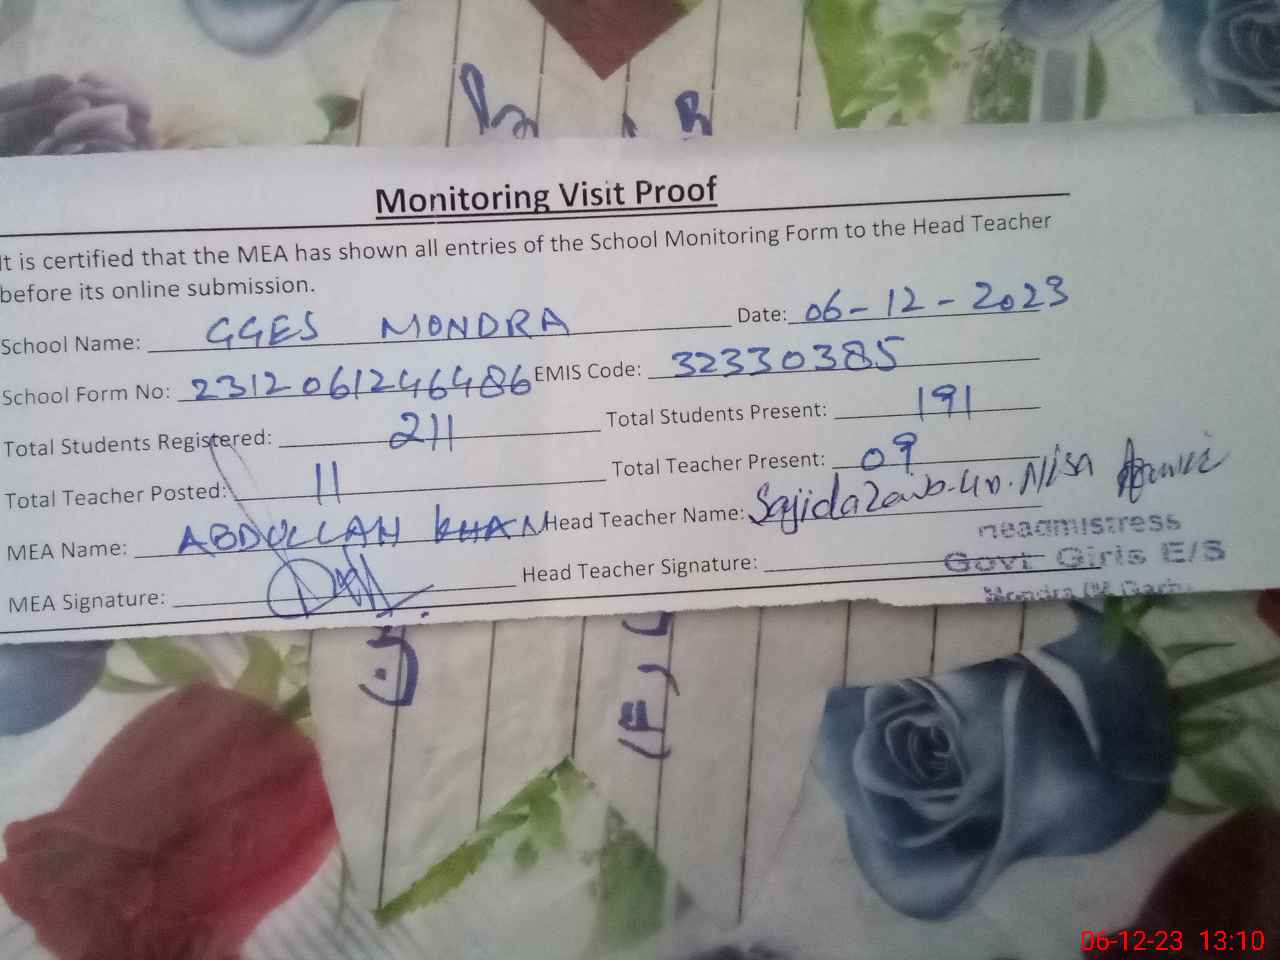 Monitoring Visit Proof
It is certified that the MEA has shown all entries of the School Monitoring Form to the Head Teacher
before its online submission.
School Name: GGES MONDRA Date: 06-12-2023
School Form No: 2312061246486 EMIS Code: 32330385
Total Students Registered: 211 Total Students Present: 191
Total Teacher Posted: 11 Total Teacher Present: 09
MEA Name: ABDULLAH KHAN Head Teacher Name: Sajida Nisa
MEA Signature: Head Teacher Signature:
Headmistress
Govt Girls E/S
Mondra
06-12-23 13:10